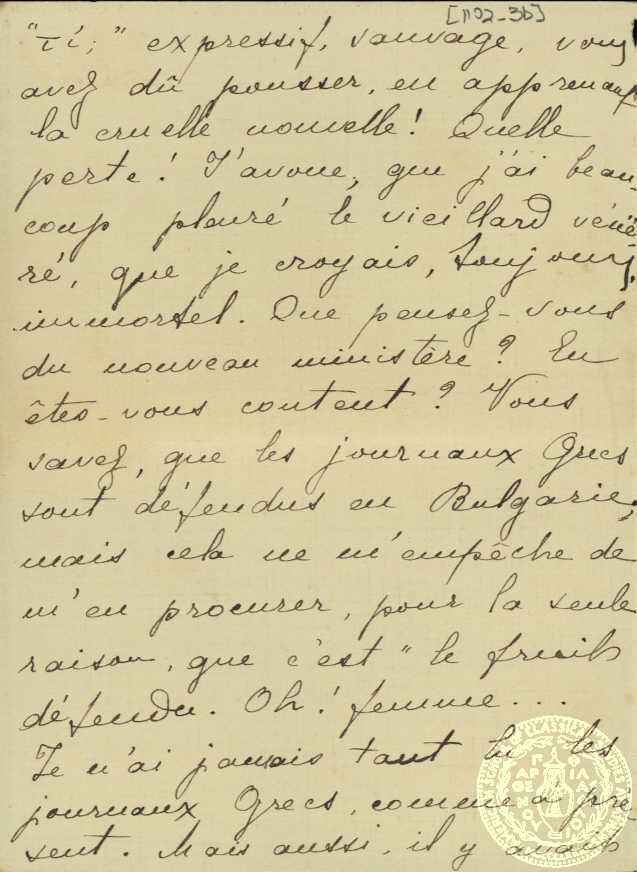 [1102-3b]
"τί;" expressif, sauvage, vous
avez dû pousser, en apprenant
la cruelle nouvelle! Quelle
perte! J'avoue, que j'ai beau
coup pleuré le vieillard véné
ré, que je croyais, toujours,
immortel. Que pensez-vous
du nouveau ministère? En
êtes-vous content? Vous
savez, que les journaux Grecs
sont défendus en Bulgarie;
mais cela ne m'empêche de
m'en procurer, pour la seule
raison, que c'est "le fruit
défendu. Oh! femme...
Je n'ai jamais tant lu les
journaux Grecs, comme à pré
sent. Mais aussi, il y avait